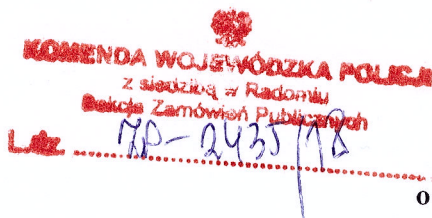 KOMENDA WOJEWÓDZKA POLICJI
z siedzibą w Radomiu
Sekcja Zamówień Publicznych
L.dz. ZP-2435/18
o